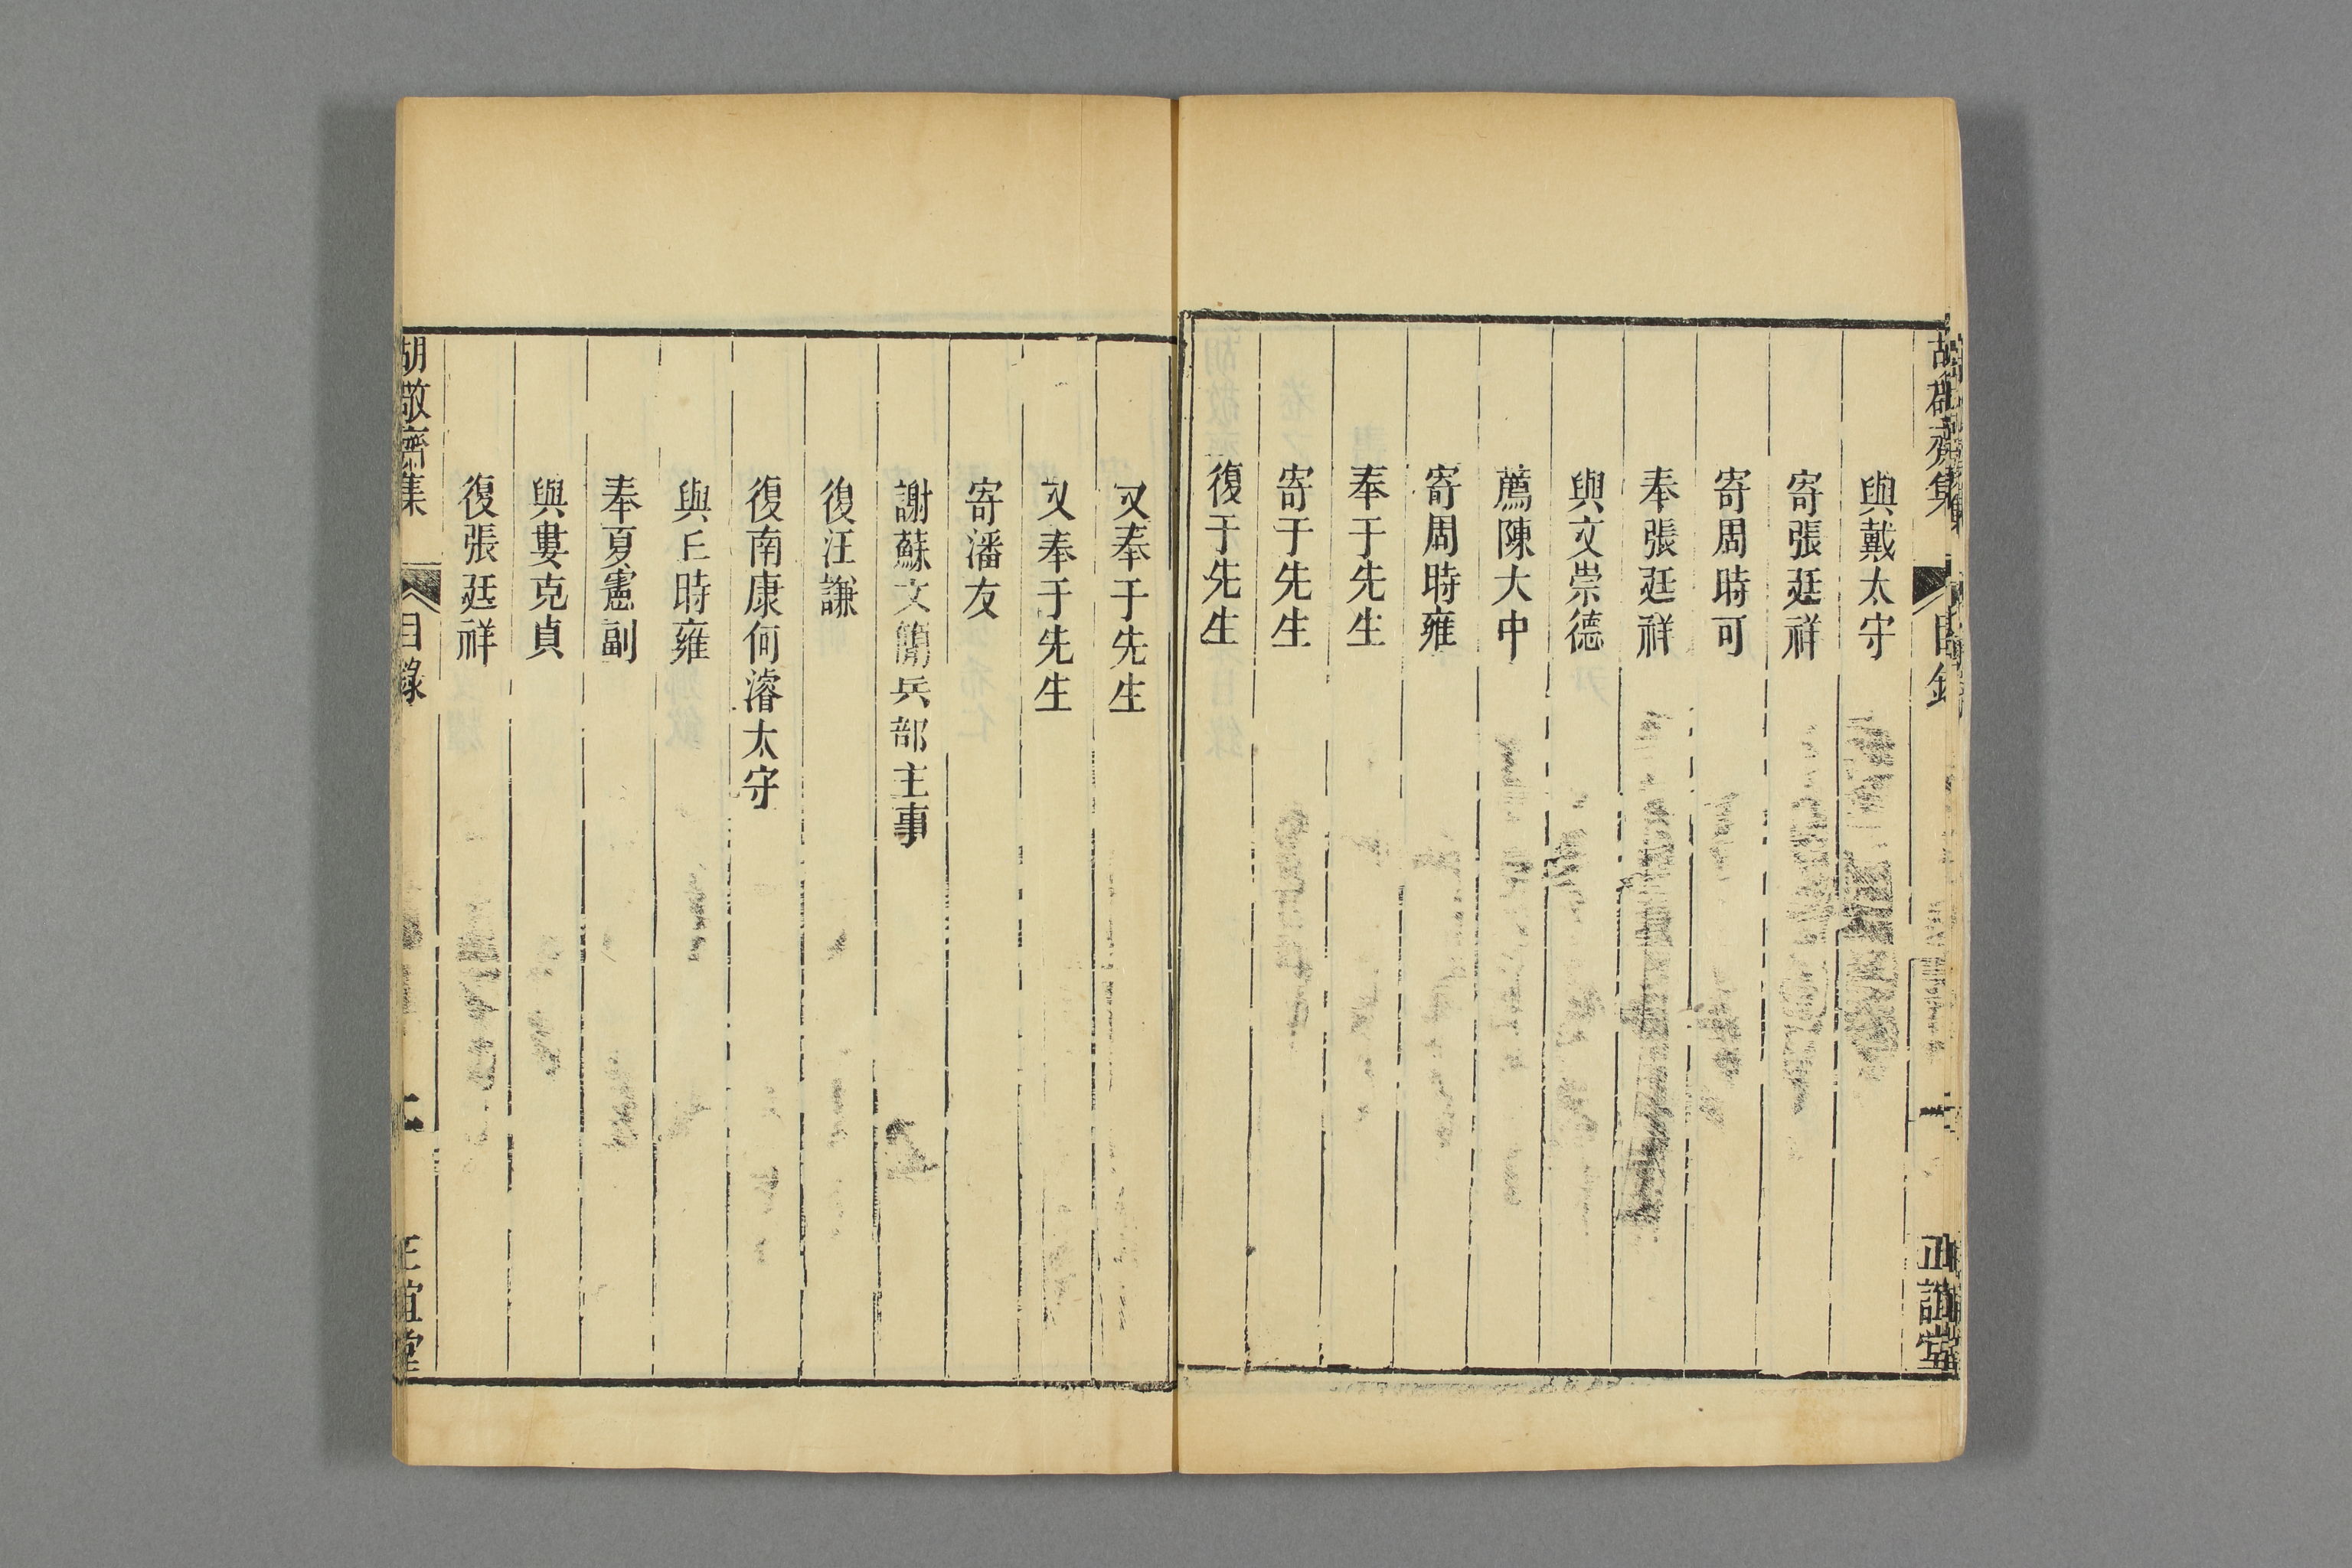 胡敬齋集
目錄
一
正誼堂
與戴太守
寄張廷祥
寄周時可
奉張廷祥
與文崇德
薦陳大中
寄周時雍
奉于先生
寄于先生
復于先生
又奉于先生
又奉于先生
寄潘友
謝蘇文簡兵部主事
復汪謙
復南康何濬太守
與丘時雍
奉夏憲副
與婁克貞
復張廷祥
胡敬齋集
目錄
二
正誼堂